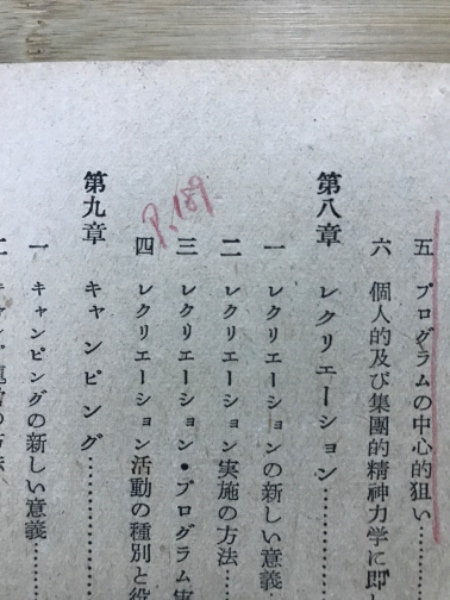 五 プログラムの中心的狙い……
六 個人的及び集團的精神力学に即し
第八章 レクリエーション……
一 レクリエーションの新しい意義……
二 レクリエーション実施の方法……
三 レクリエーション・プログラム実
P.189
四 レクリエーション活動の種別と役
第九章 キャンピング……
一 キャンピングの新しい意義……
二